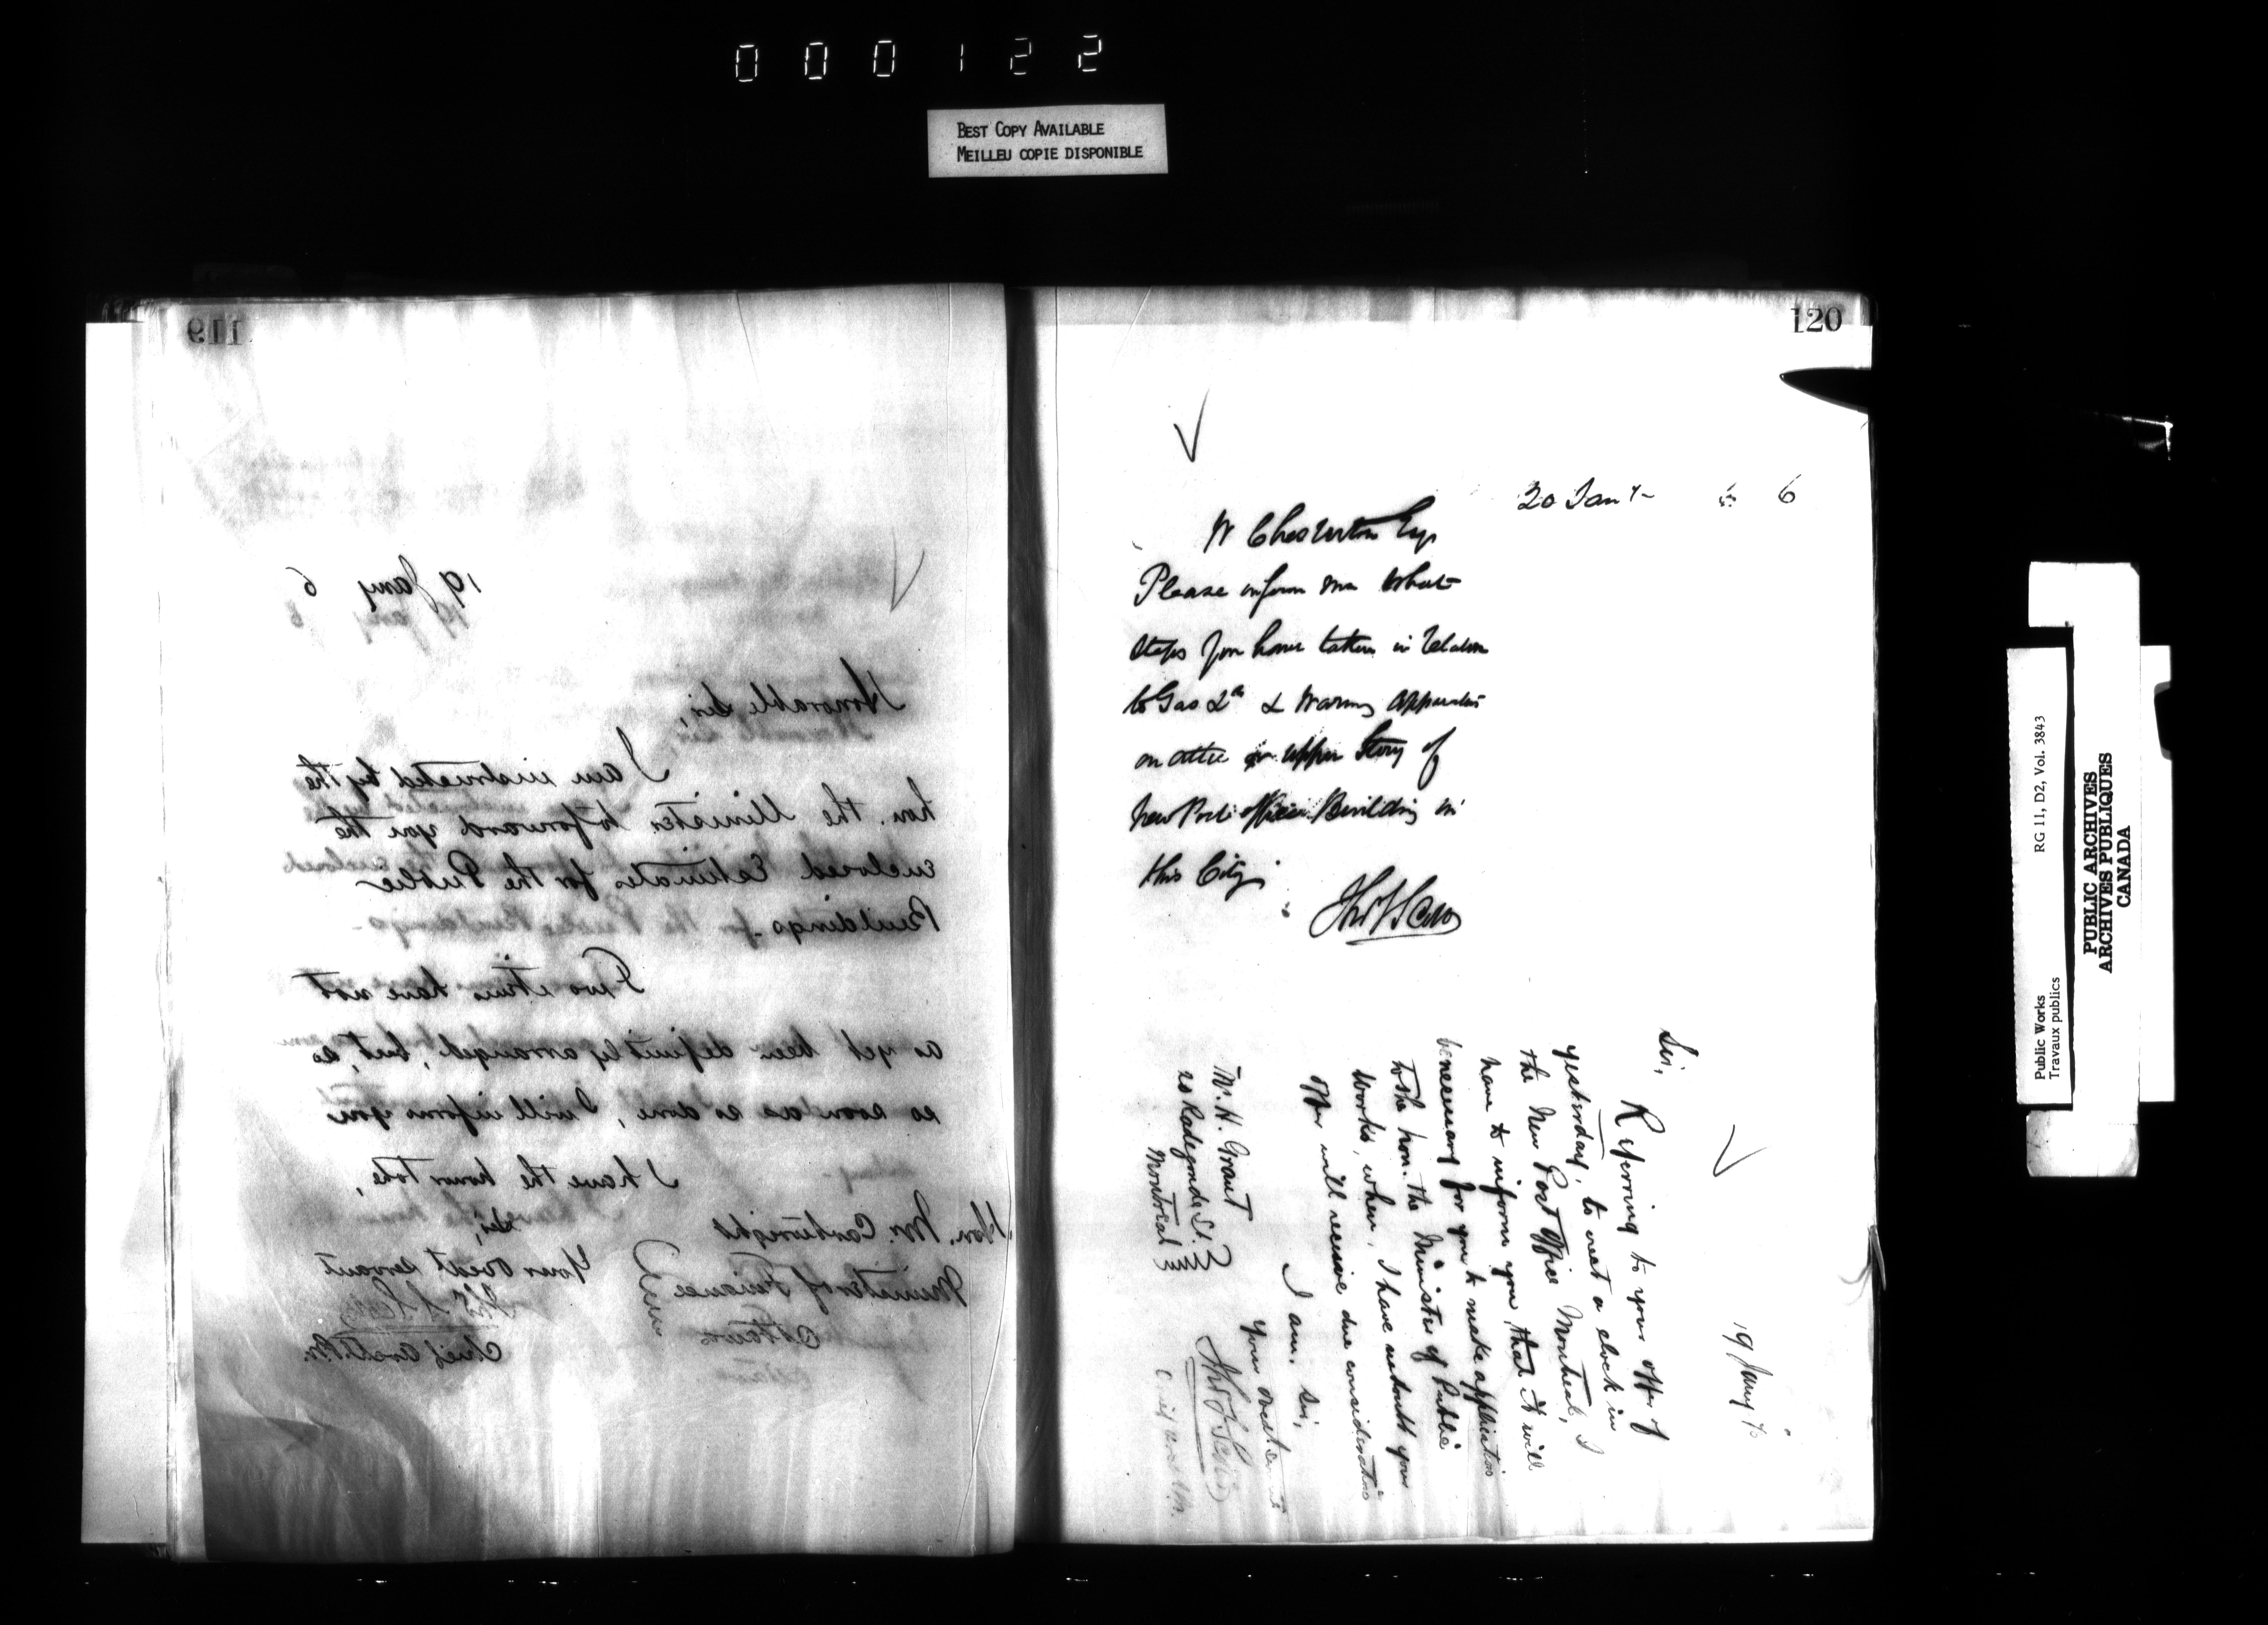 000122
BEST COPY AVAILABLE
MEILLEU COPIE DISPONIBLE
119
19 Jany 6
Honorable Sir,
I am instructed by the
hon. the Minister to forward you the
enclosed Estimates for the Public
Buildings.
Two items have not
as yet been definitly arranged, but, as
so soon as so done, I will inform you
I have the honor to be,
Sir,
Your Obedt servant
Chief Archt. P.W.
Hon. Mr. Cartwright
Minister of Finance
Ottawa
120
20 Jany 6
W Chesterton Esq
Please inform me what
steps you have taken in relation
to Gas & Warming apparatus
on attic or upper Story of
new Post office Building in
this City
Thos S Scott
19 Jany /6
Sir,
Referring to your offer of
yesterday, to erect a clock in
the New Post Office Montreal, I
have to inform you that it will
be necessary for you to make application
to the hon. the Minister of Public
Works, when, I have no doubt your
offer will receive due consideration
I am, Sir,
Your Obedt servant
Thos S Scott
Chief Archt P.W.
W. H. Grant
Radegonde St.
Montreal
Public Works
Travaux publics
RG 11, D2, Vol. 3843
PUBLIC ARCHIVES
ARCHIVES PUBLIQUES
CANADA